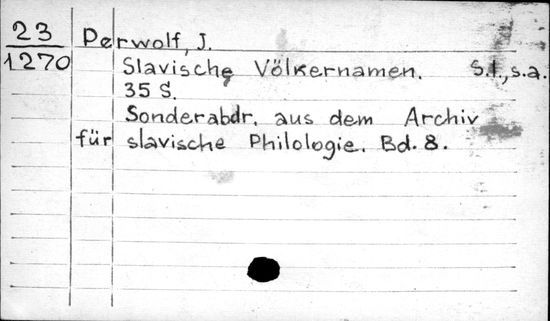 23 Perwolf, J.
1270 Slavische Völkernamen. S.l., s.a.
35 S.
Sonderabdr. aus dem Archiv
für slavische Philologie. Bd. 8.